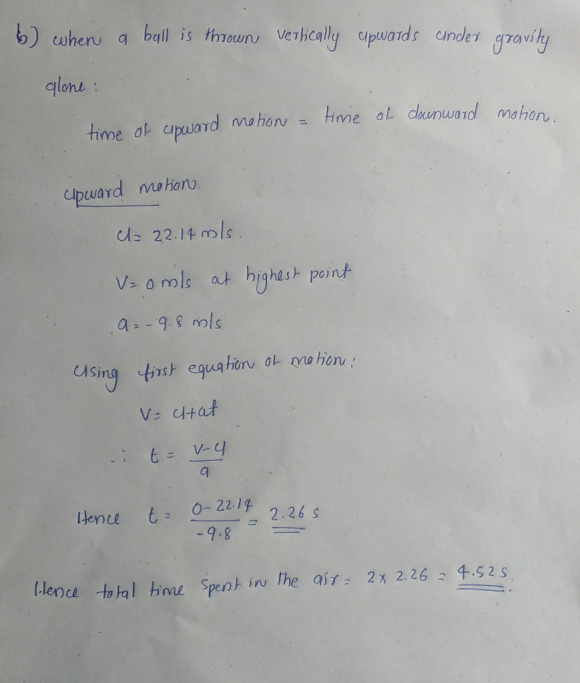 b) when a ball is thrown vertically upwards under gravity
alone :
time of upward motion = time of downward motion.
upward motion.
u= 22.14 m/s.
V= 0 m/s at highest point
a = -9.8 m/s
Using first equation of motion:
V= u+at
∴ t = V-u / a
Hence t = 0-22.14 / -9.8 = 2.26 s
Hence total time spent in the air = 2x 2.26 = 4.52 s.